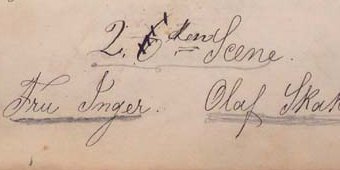 2. den Scene.
Fru Inger. Olaf Skak